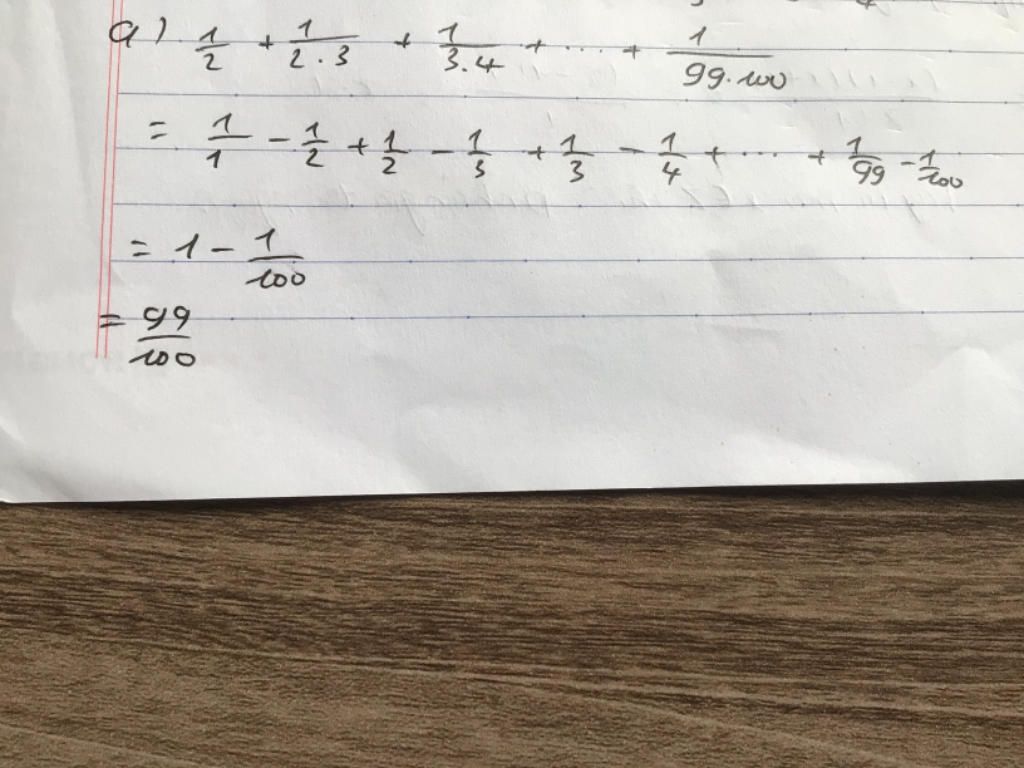 a) 1/2 + 1/2.3 + 1/3.4 + ... + 1/99.100
= 1/1 - 1/2 + 1/2 - 1/3 + 1/3 - 1/4 + ... + 1/99 - 1/100
= 1 - 1/100
= 99/100